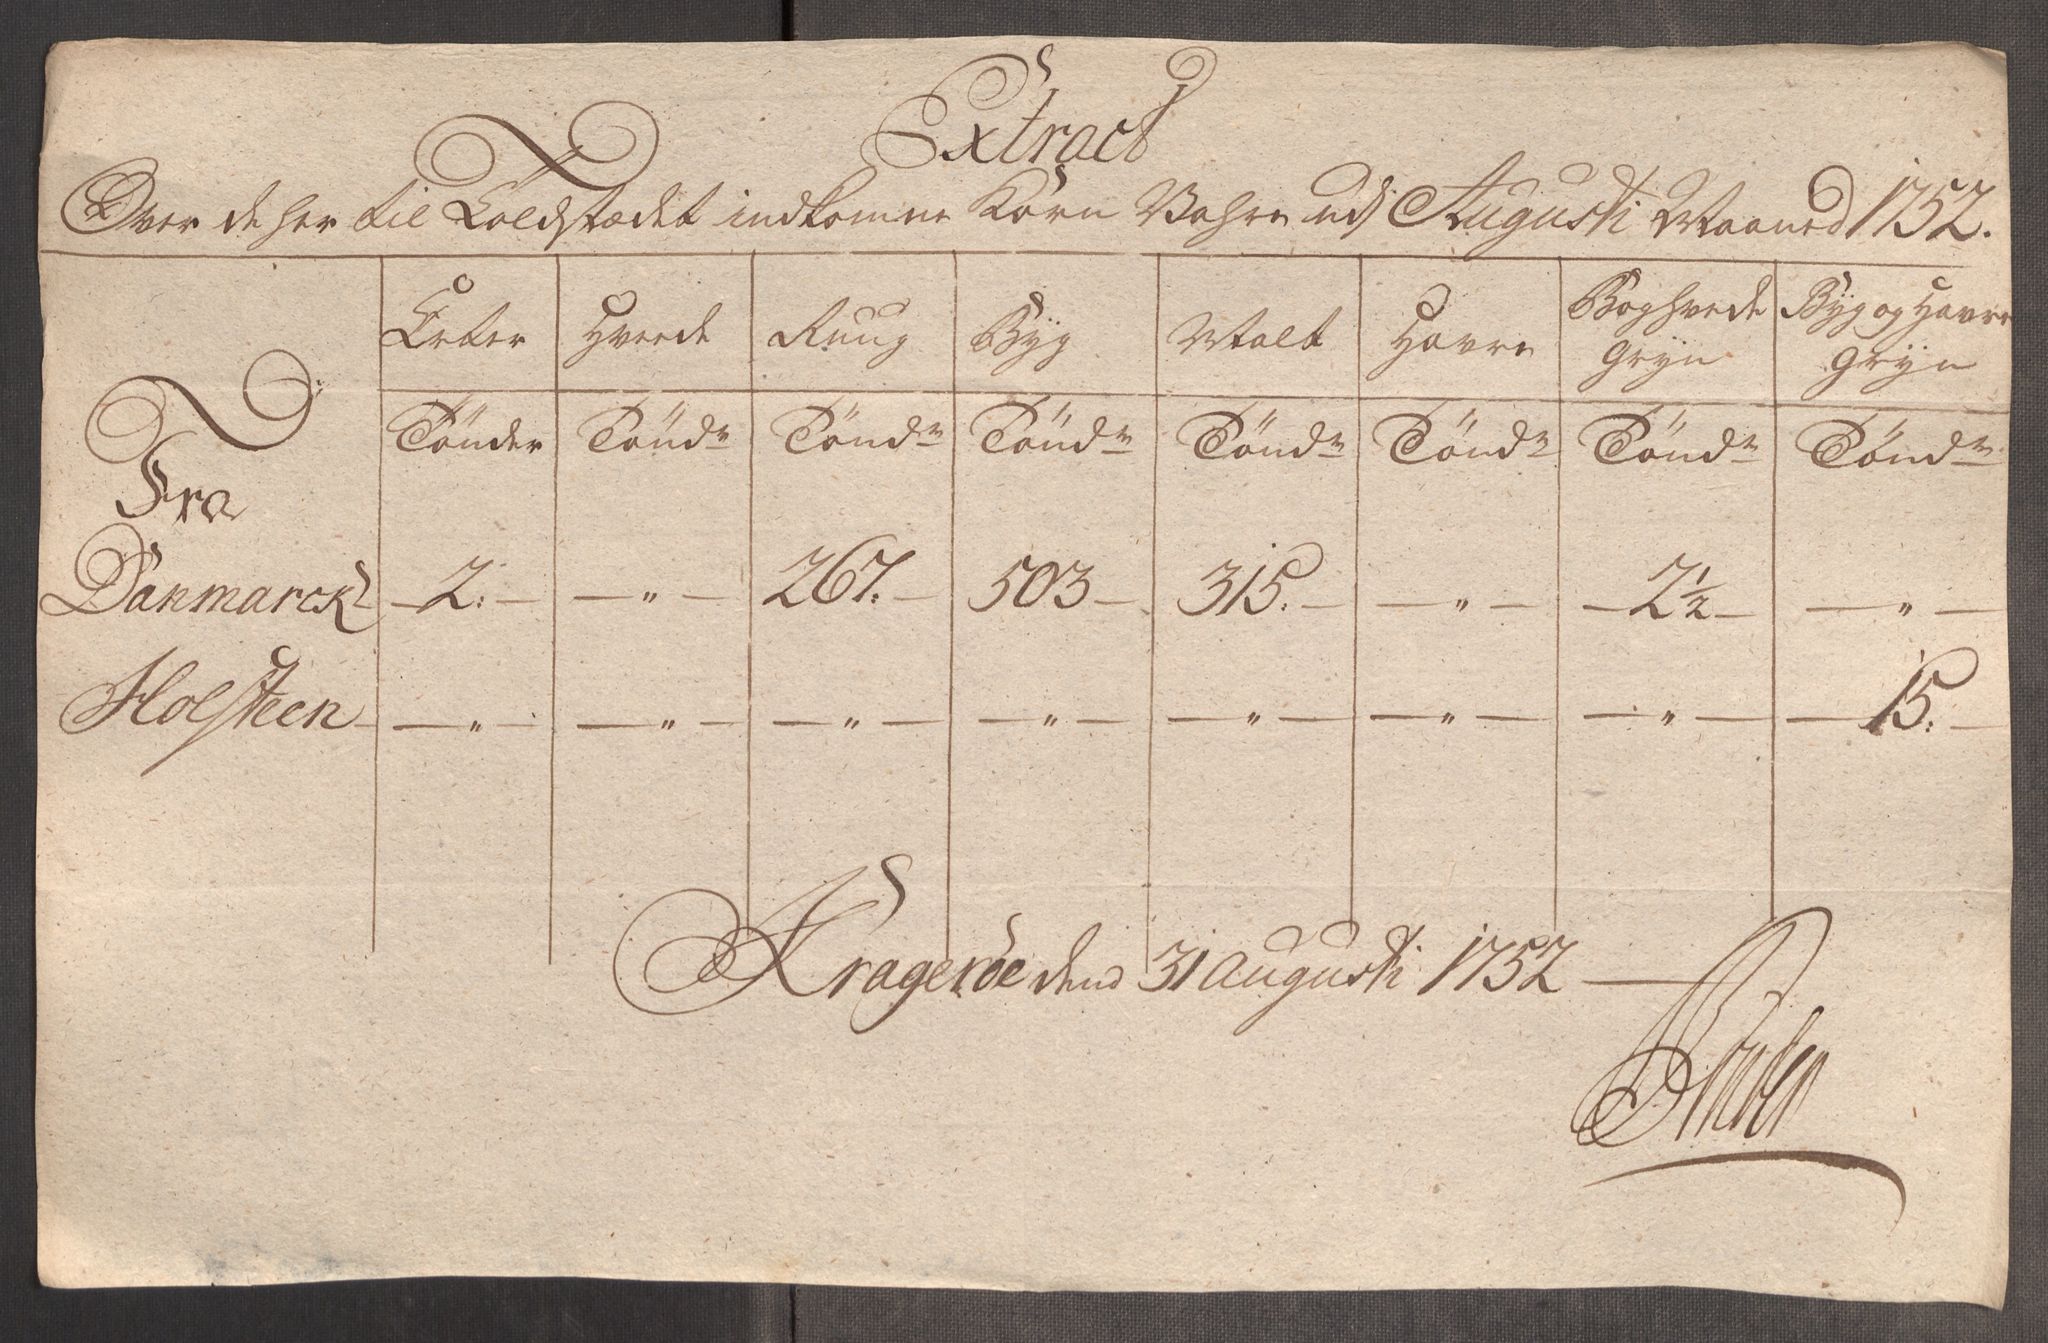 Extract
Over de her til Toldstædet indkomne Korn Vahre udj Augusti Maaned 1752.
Erter Hvede Ruug Byg Malt Havre Boghvede Gryn Byg og Havre Gryn
Fra Tönder Töndr Töndr Töndr Töndr Töndr Töndr Töndr
Danmarck – 2: – – " – 267. – 503 – 315. – – " – – 2 1/2 – – " –
Holsteen – – " – – " – – " – – " – – " – – " – – " – – 15: –
Krageröe dend 31 Augusti 1752 –